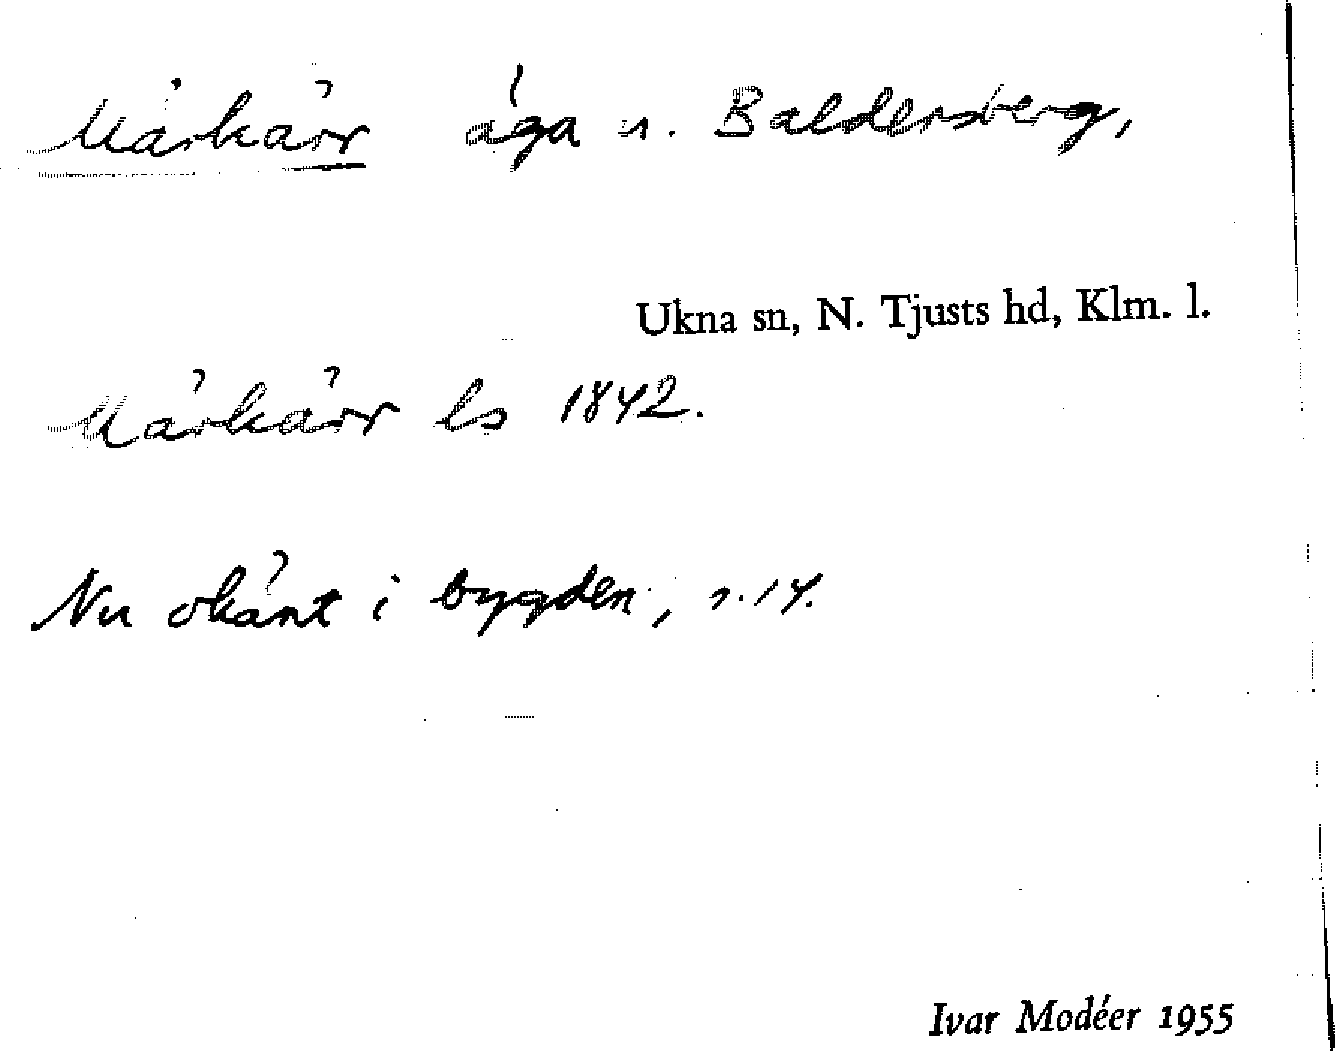 Märkärr äga u. Baldersberg,
Ukna sn, N. Tjusts hd, Klm. l.
Märkärr ls 1842.
Nu okänt i bygden, s. 14.
Ivar Modéer 1955